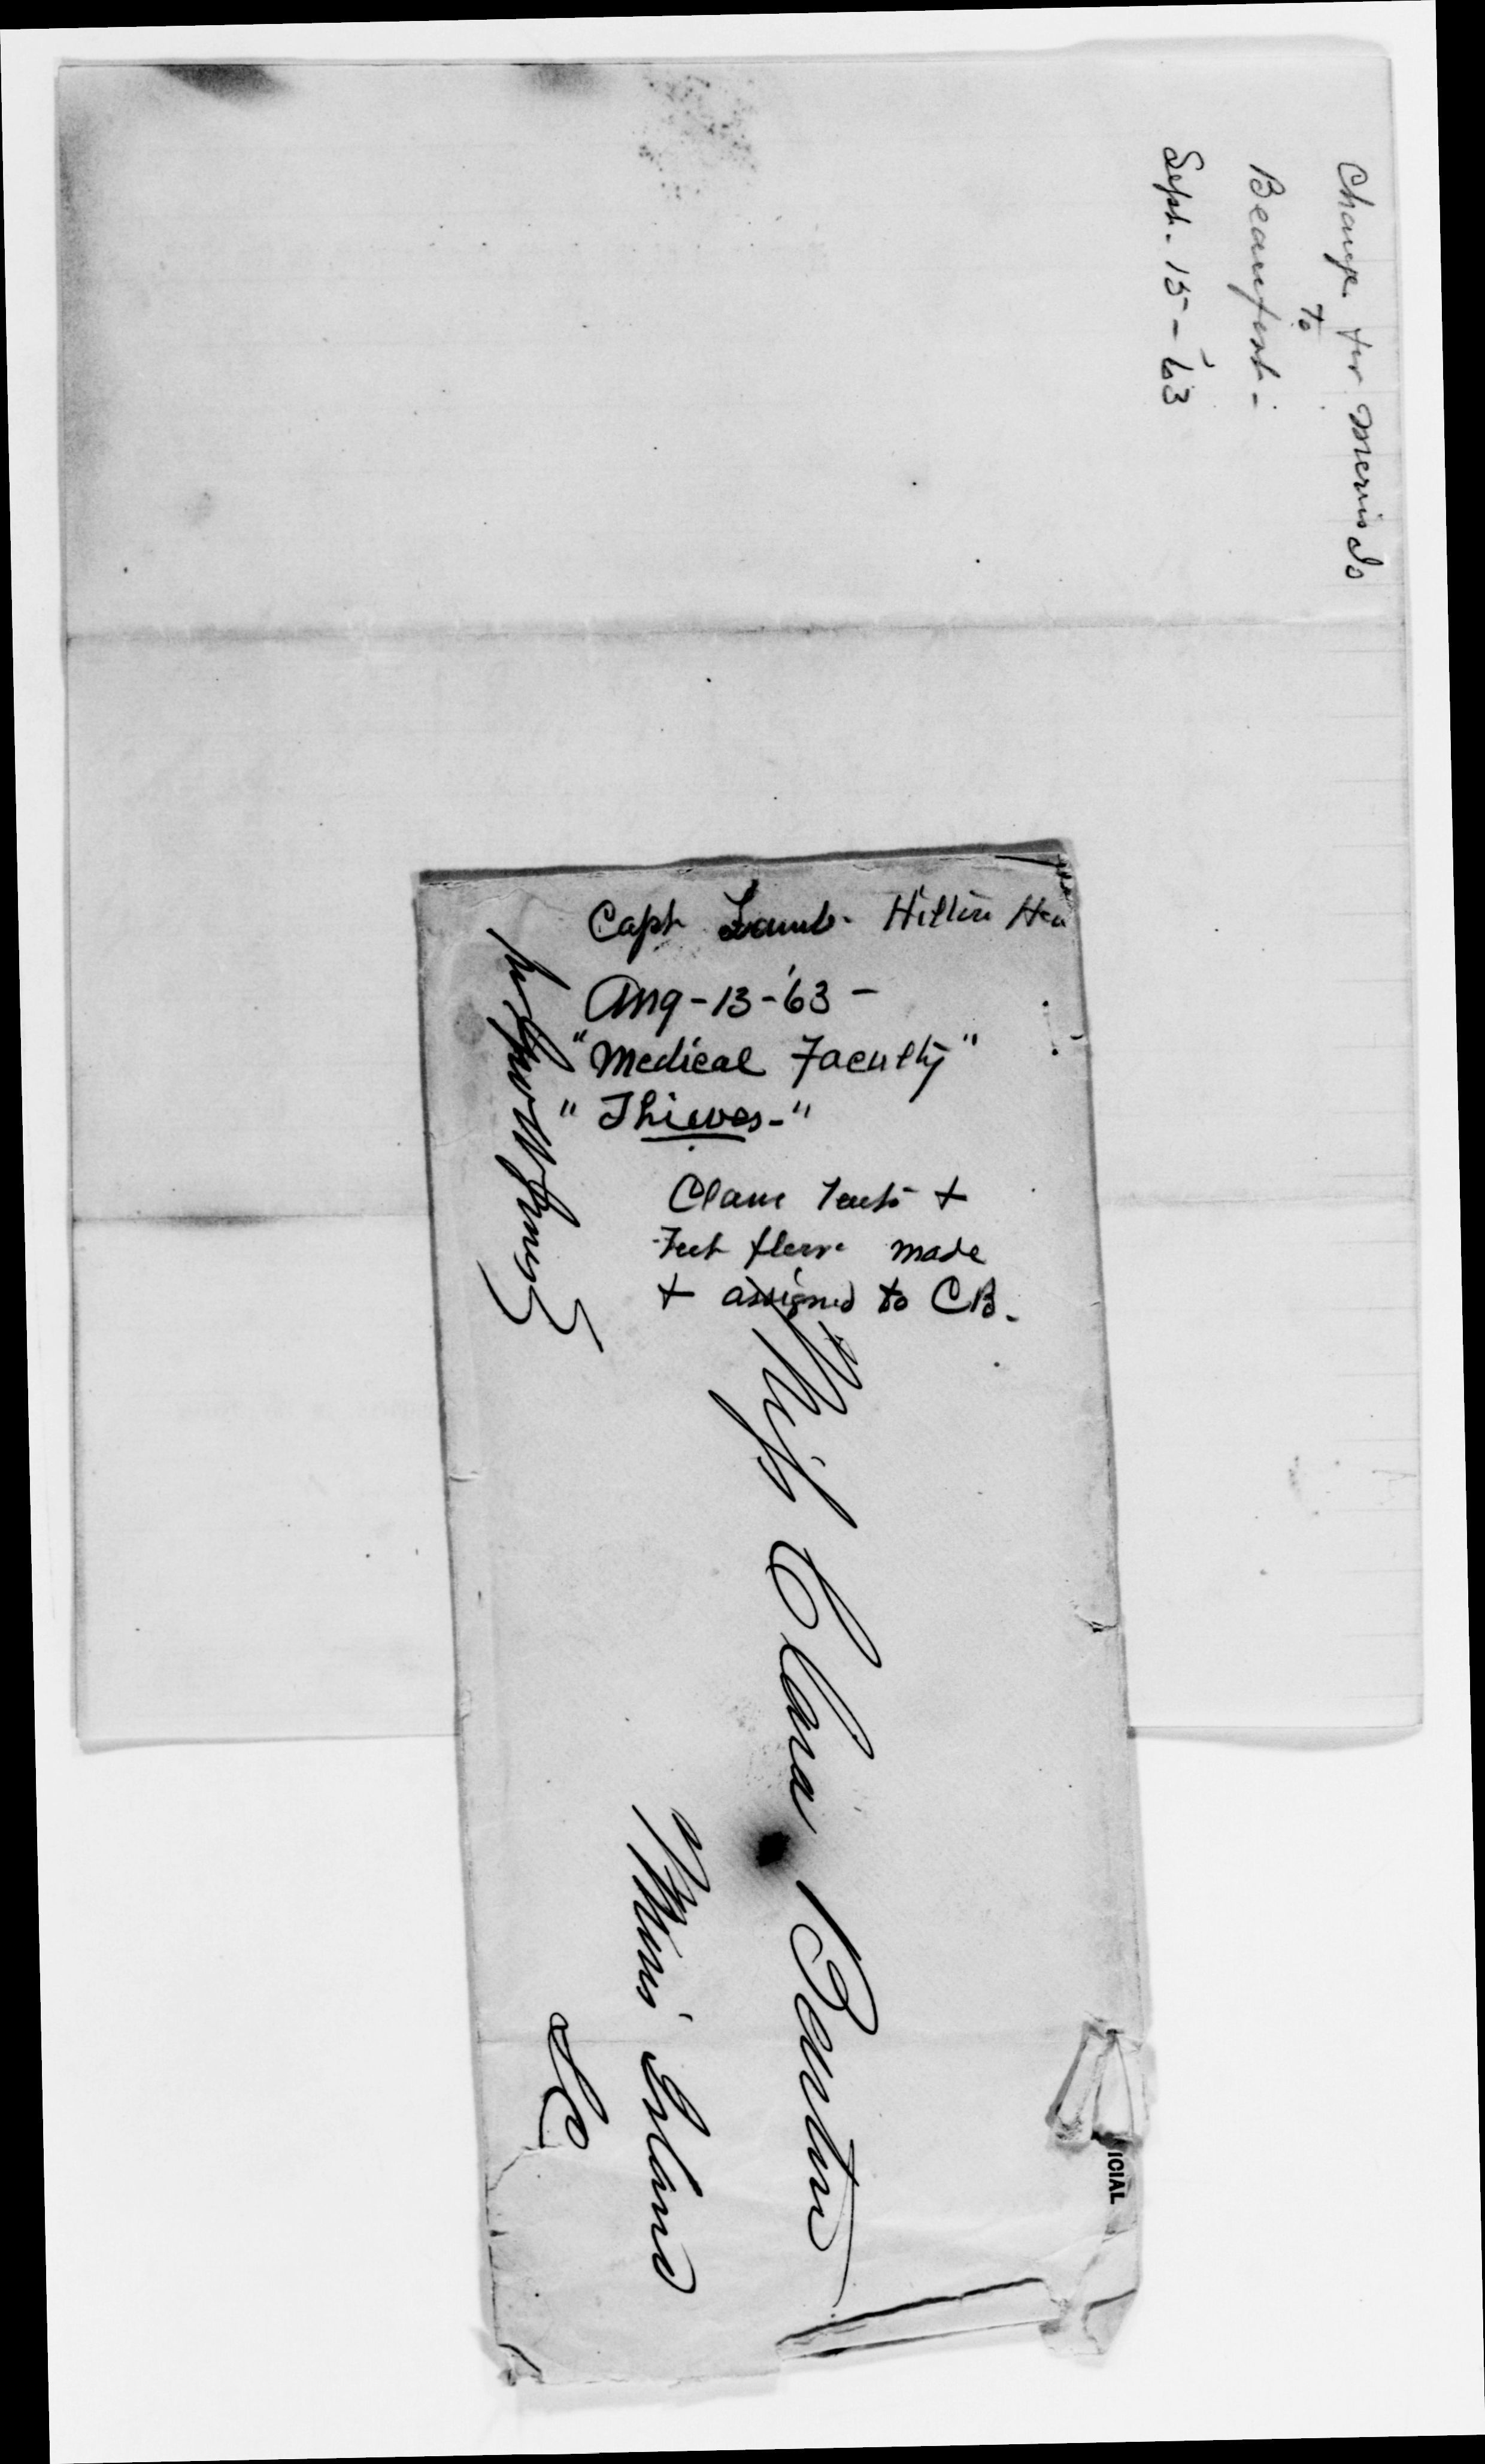 Change for Morris Is
To
Beaufort -
Sept. 15 - '63
Capt Lamb - Hilton Hea
Aug - 13 - '63 -
"Medical Faculty"
"Thieves - "
made
+ assigned to CB.
Miss Clara Barton
Morris Island
SC
ICIAL